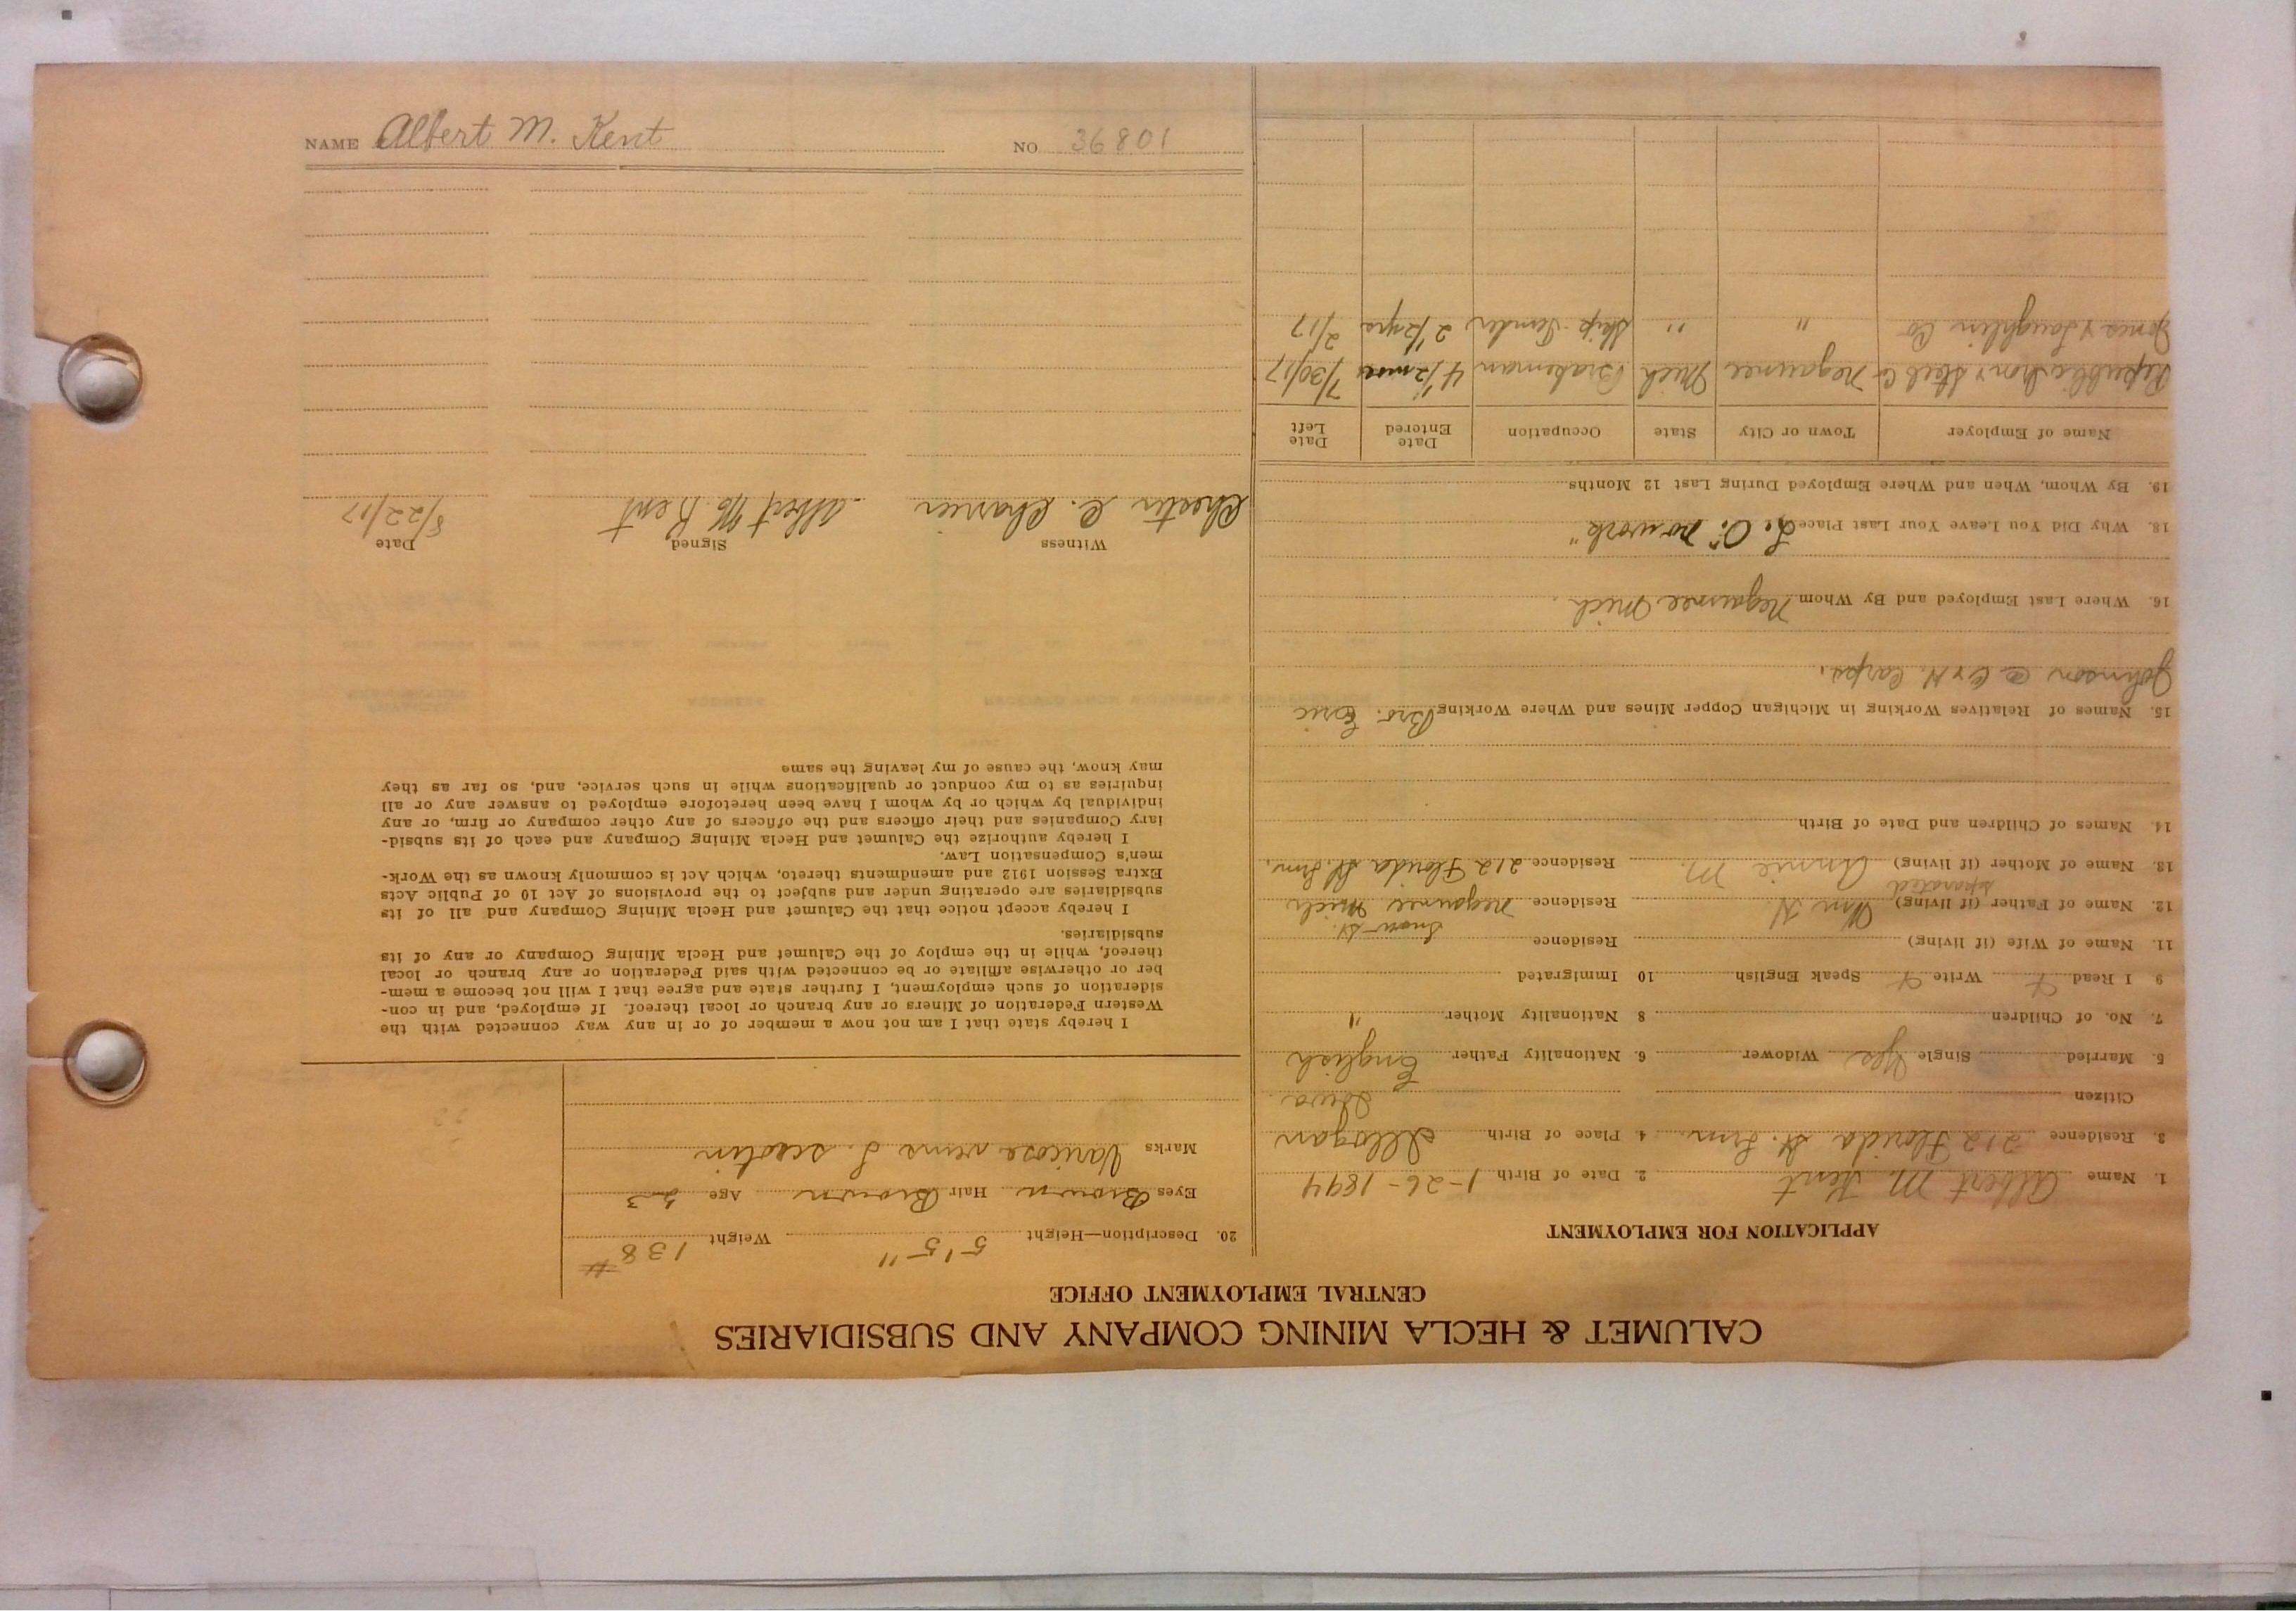 CALUMET & HECLA MINING COMPANY AND SUBSIDIARIES
CENTRAL EMPLOYMENT OFFICE
APPLICATION FOR EMPLOYMENT
1. Name Albert M. Kent 2. Date of Birth 1-26-1894
3. Residence 212 Florida St. Lrm. 4. Place of Birth
Citizen Iowa
5. Married Single Yes Widower 6. Nationality Father English
7. No. of Children 8 Nationality Mother "
9 I Read Write Speak English 10 Immigrated
11. Name of Wife (if living) Residence Snow St.
12. Name of Father (if living) Wm H. Residence Negaunee Mich
separated
13. Name of Mother (if living) Annie M. Residence 212 Florida St. Lrm.
14. Names of Children and Date of Birth
15. Names of Relatives Working in Michigan Copper Mines and Where Working Bro. Eric
Johnson @ C & H. Carps.
16. Where Last Employed and By Whom Negaunee Mich.
18. Why Did You Leave Your Last Place L. O. "no work"
19. By Whom, When and Where Employed During Last 12 Months
Name of Employer Town or City State Occupation Date Entered Date Left
Republic Iron & Steel Co Negaunee Mich Brakeman 4 1/2 mos 7/30/17
Jones & Laughlin Co " " Skip Tender 2 1/2 yrs 2/17
20. Description—Height 5'5" Weight 138 #
Eyes Brown Hair Brown Age 23
Marks Varicose veins L.
I hereby state that I am not now a member of or in any way connected with the
Western Federation of Miners or any branch or local thereof. If employed, and in con-
sideration of such employment, I further state and agree that I will not become a mem-
ber or otherwise affiliate or be connected with said Federation or any branch or local
thereof, while in the employ of the Calumet and Hecla Mining Company or any of its
subsidiaries.
I hereby accept notice that the Calumet and Hecla Mining Company and all of its
subsidiaries are operating under and subject to the provisions of Act 10 of Public Acts
Extra Session 1912 and amendments thereto, which Act is commonly known as the Work-
men's Compensation Law.
I hereby authorize the Calumet and Hecla Mining Company and each of its subsid-
iary Companies and their officers and the officers of any other company or firm, or any
individual by which or by whom I have been heretofore employed to answer any or all
inquiries as to my conduct or qualifications while in such service, and, so far as they
may know, the cause of my leaving the same
Witness Signed Date
Chester C. Albert M. Kent 8/22/17
NAME Albert M. Kent NO 36801